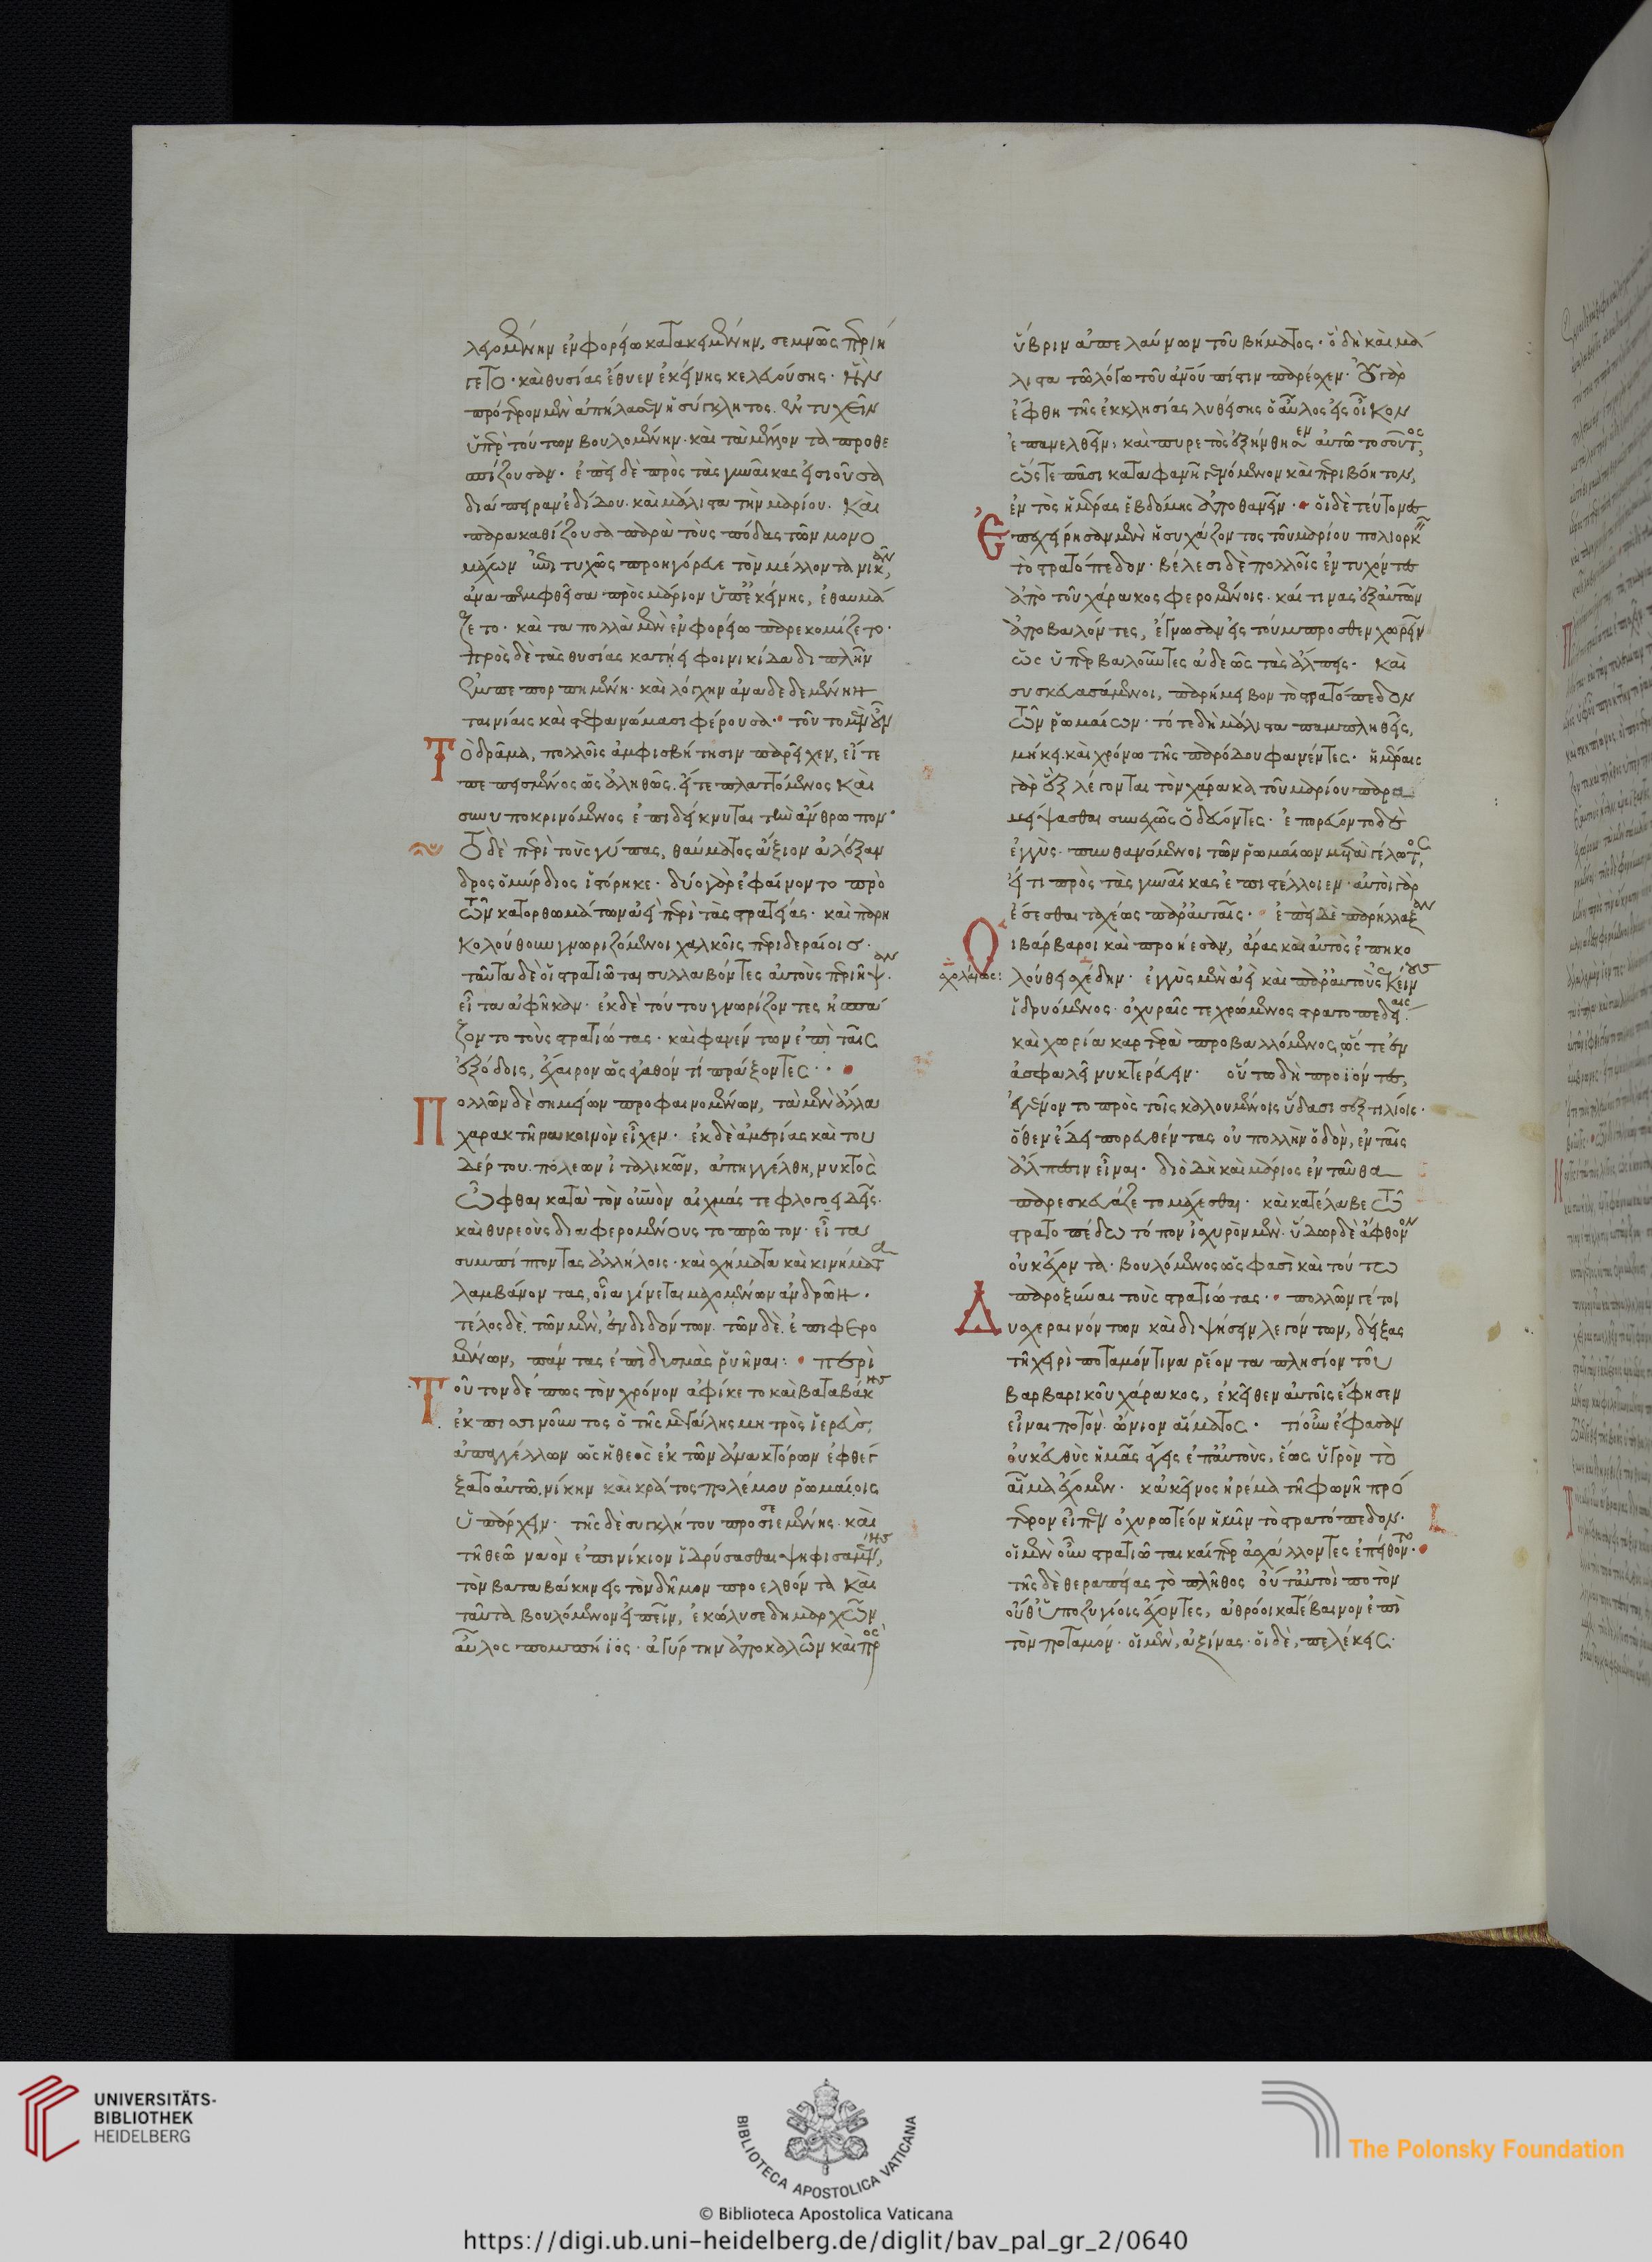 λεγομένην ἐν φορείω κατακειμένην, σεμνῶς περιή
γετο· καὶ θυσίας ἔθυεν ἐκείνης κελευούσης· ἣν
πρότερον μὲν ἀπήλασεν ἡ σύγκλητος. ἐντυχεῖν
ὑπὲρ τούτων βουλομένην· καὶ τὰ μέλλοντα προθε
σπίζουσαν· ἐπεὶ δὲ πρὸς τὰς γυναῖκας εἰσιοῦσα
διάπειραν ἐδίδου· καὶ μάλιστα τὴν μαρίου. καὶ
παρακαθίζουσα παρὰ τοὺς πόδας τῶν μονο
μάχων ἐπιτυχῶς προηγόρευε τὸν μέλλοντα νικᾶν,
ἀναπεμφθεῖσα πρὸς μάριον ὑπ' ἐκείνης, ἐθαυμά
ζετο· καὶ τα πολλὰ μὲν ἐν φορείω παρεκομίζετο·
πρὸς δὲ τὰς θυσίας κατήει φοινικίδα διπλῆν
ἐμπεπορπημένη· καὶ λόγχην ἀναδεδεμένην
ταινίαις καὶ στεφανώμασι φέρουσα· τοῦτο μὲν οὖν
Τὸ δρᾶμα, πολλοῖς ἀμφισβήτησιν παρεῖχεν, εἴτε
πεπεισμένος ὡς ἀληθῶς· εἴτε πλαττόμενος καὶ
συνυποκρινόμενος ἐπιδείκνυται τὴν ἄνθρωπον·
Ὃ δὲ περὶ τοὺς γύπας, θαύματος ἄξιον ἀλέξαν
δρος ὁ μύρδιος ἱστόρηκε· δύο γὰρ ἐφαίνοντο πρὸ
τῶν κατορθωμάτων ἀεὶ περὶ τὰς στρατείας· καὶ παρη
κολούθουν γνωριζόμενοι χαλκοῖς περιδεραίοις·
ταῦτα δὲ οἱ στρατιῶται συλλαβόντες αὐτοὺς περιῆψαν.
εἶτα ἀφῆκαν· ἐκ δὲ τούτου γνωρίζοντες ἠσπά
ζοντο τοὺς στρατιώτας· καὶ φανέντων ἐπὶ ταῖς
ἐξόδοις, ἔχαιρον ὡς ἀγαθόν τι πράξοντες·
Πολλῶν δὲ σημείων προφαινομένων, τὰ μὲν ἄλλα
χαρακτῆρα κοινὸν εἶχεν· ἐκ δὲ ἀμερίας καὶ του
δέρτου. πόλεων ἰταλικῶν, ἀπηγγέλθη, νυκτὸς
ὦφθαι κατὰ τὸν οὐνὸν αἰχμάς τε φλογοειδεῖς·
καὶ θυρεοὺς διαφερομένους το πρῶτον· εἶτα
συμπίπτοντας ἀλλήλοις· καὶ σχήματα καὶ κινήματα
λαμβάνοντας, οἷα γίνεται μαχομένων ἀνδρῶν.
τέλος δὲ. τῶν μὲν, ἐνδιδόντων. τῶν δὲ. ἐπιφερο
μένων, πάντας ἐπὶ δυσμὰς ῥυῆναι: περὶ
Τοῦτον δέ πως τὸν χρόνον ἀφίκετο καὶ βαταβάκης
ἐκ πισινοῦντος ὁ τῆς μεγάλης μητρὸς ἱερεὺς,
ἀπαγγέλλων ὡς ἡ θεὸς ἐκ τῶν ἀνακτόρων ἐφθέγ
ξατο αὐτῶ, νίκην καὶ κράτος πολέμου ῥωμαίοις
ὑπάρχειν· τῆς δὲ συγκλήτου προσιεμένης. καὶ
τῆ θεῶ ναὸν ἐπινίκιον ἱδρύσασθαι ψηφισαμένης,
τὸν βαταβάκην εἰς τὸν δῆμον προελθόντα καὶ
ταῦτα βουλόμενον εἰπεῖν, ἐκώλυσε δημαρχῶν
αὖλος πομπήϊος· ἀγύρτην ἀποκαλῶν καὶ πρὸς
ὕβριν ἀπελαύνων τοῦ βήματος· ὃ δὴ καὶ μά
λιστα τῶ λόγω τοῦ ἀνοῦ πίστιν παρέσχεν· οὐ γὰρ
ἔφθη τῆς ἐκκλησίας λυθείσης ὁ αὖλος εἰς οἶκον
ἐπανελθεῖν, καὶ πυρετὸς ἐξήνθησεν αὐτῶ τοσοῦτος,
ὥστε πᾶσι καταφανῆ γενόμενον καὶ περιβόητον,
ἐντὸς ἡμέρας ἑβδόμης ἀποθανεῖν· οἱ δὲ τεύτονες
Ἐπεχείρησαν μὲν ἡσυχάζοντος τοῦ μαρίου πολιορκεῖν
τὸ στρατόπεδον· βέλεσι δὲ πολλοῖς ἐντυχόντες
ἀπὸ τοῦ χάρακος φερομένοις· καί τινας ἐξ αὐτῶν
ἀποβαλόντες, ἔγνωσαν εἰς τούμπροσθεν χωρεῖν
ὡς ὑπερβαλοῦντες ἀδεῶς τὰς ἄλπεις· καὶ
συσκευασάμενοι, παρήμειβον τὸ στρατόπεδον
τῶν ῥωμαίων· τότε δὴ μάλιστα παμπληθεῖς,
μήκει καὶ χρόνω τῆς παρόδου φανέντες· ἡμέραις
γὰρ ἓξ λέγονται τὸν χάρακα τοῦ μαρίου παρα
μείψασθαι συνεχῶς ὁδεύοντες· ἐπορεύοντο δὲ
ἐγγὺς· πυνθανόμενοι τῶν ῥωμαίων μετὰ γέλωτος,
εἴ τι πρὸς τὰς γυναῖκας ἐπιστέλλοιεν· αὐτοὶ γὰρ
ἔσεσθαι ταχέως παρ' αὐταῖς· ἐπεὶ δὲ παρήλλαξαν
Οἱ βάρβαροι καὶ προήεσαν, ἄρας καὶ αὐτὸς ἐπηκο
λούθει σχέδην· ἐγγὺς μὲν ἀεὶ καὶ παρ' αὐτοὺς ἐκείνους
σχολαίως:
ἱδρυόμενος· ὀχυραῖς τε χρώμενος στρατοπεδείαις·
καὶ χωρία καρτερὰ προβαλλόμενος, ὥς τε ἐν
ἀσφαλεῖ νυκτερεύειν· οὕτω δὴ προϊόντες,
ἐγένοντο πρὸς τοῖς καλουμένοις ὕδασι σεξτιλίοις·
ὅθεν ἔδει πορευθέντας οὐ πολλὴν ὁδὸν, ἐν ταῖς
ἄλπεσιν εἶναι· διὸ δὴ καὶ μάριος ἐνταῦθα
παρεσκευάζετο μάχεσθαι· καὶ κατέλαβε τῶ
στρατοπέδω τόπον ἰσχυρὸν μὲν· ὕδωρ δὲ ἄφθονον
οὐκ ἔχοντα· βουλόμενος ὥς φασὶ καὶ τούτω
παροξῦναι τοὺς στρατιώτας· πολλῶν γέ τοι
Δυσχεραινόντων καὶ διψήσειν λεγόντων, δείξας
τῆ χειρὶ ποταμόν τινα ῥέοντα πλησίον τοῦ
βαρβαρικοῦ χάρακος, ἐκεῖθεν αὐτοῖς ἔφησεν
εἶναι ποτὸν ὤνιον αἵματος· τί οὖν ἔφασαν
οὐκ εὐθὺς ἡμᾶς ἄγεις ἐπ' αὐτοὺς, ἕως ὑγρὸν τὸ
αἷμα ἔχομεν· κἀκεῖνος ἠρέμα τῆ φωνῆ πρό
τερον εἶπεν ὀχυρωτέον ἡμῖν τὸ στρατόπεδον·
οἱ μὲν οὖν στρατιῶται καίπερ ἀσχάλλοντες ἐπείθοντο·
τῆς δὲ θεραπείας τὸ πλῆθος οὔτ' αὐτοὶ ποτὸν
οὔθ' ὑποζυγίοις ἔχοντες, ἀθρόοι κατέβαινον ἐπὶ
τὸν ποταμόν· οἱ μὲν, ἀξίνας· οἱ δὲ, πελέκεις·
UNIVERSITÄTS-
BIBLIOTHEK
HEIDELBERG
BIBLIOTECA APOSTOLICA VATICANA
The Polonsky Foundation
© Biblioteca Apostolica Vaticana
https://digi.ub.uni-heidelberg.de/diglit/bav_pal_gr_2/0640